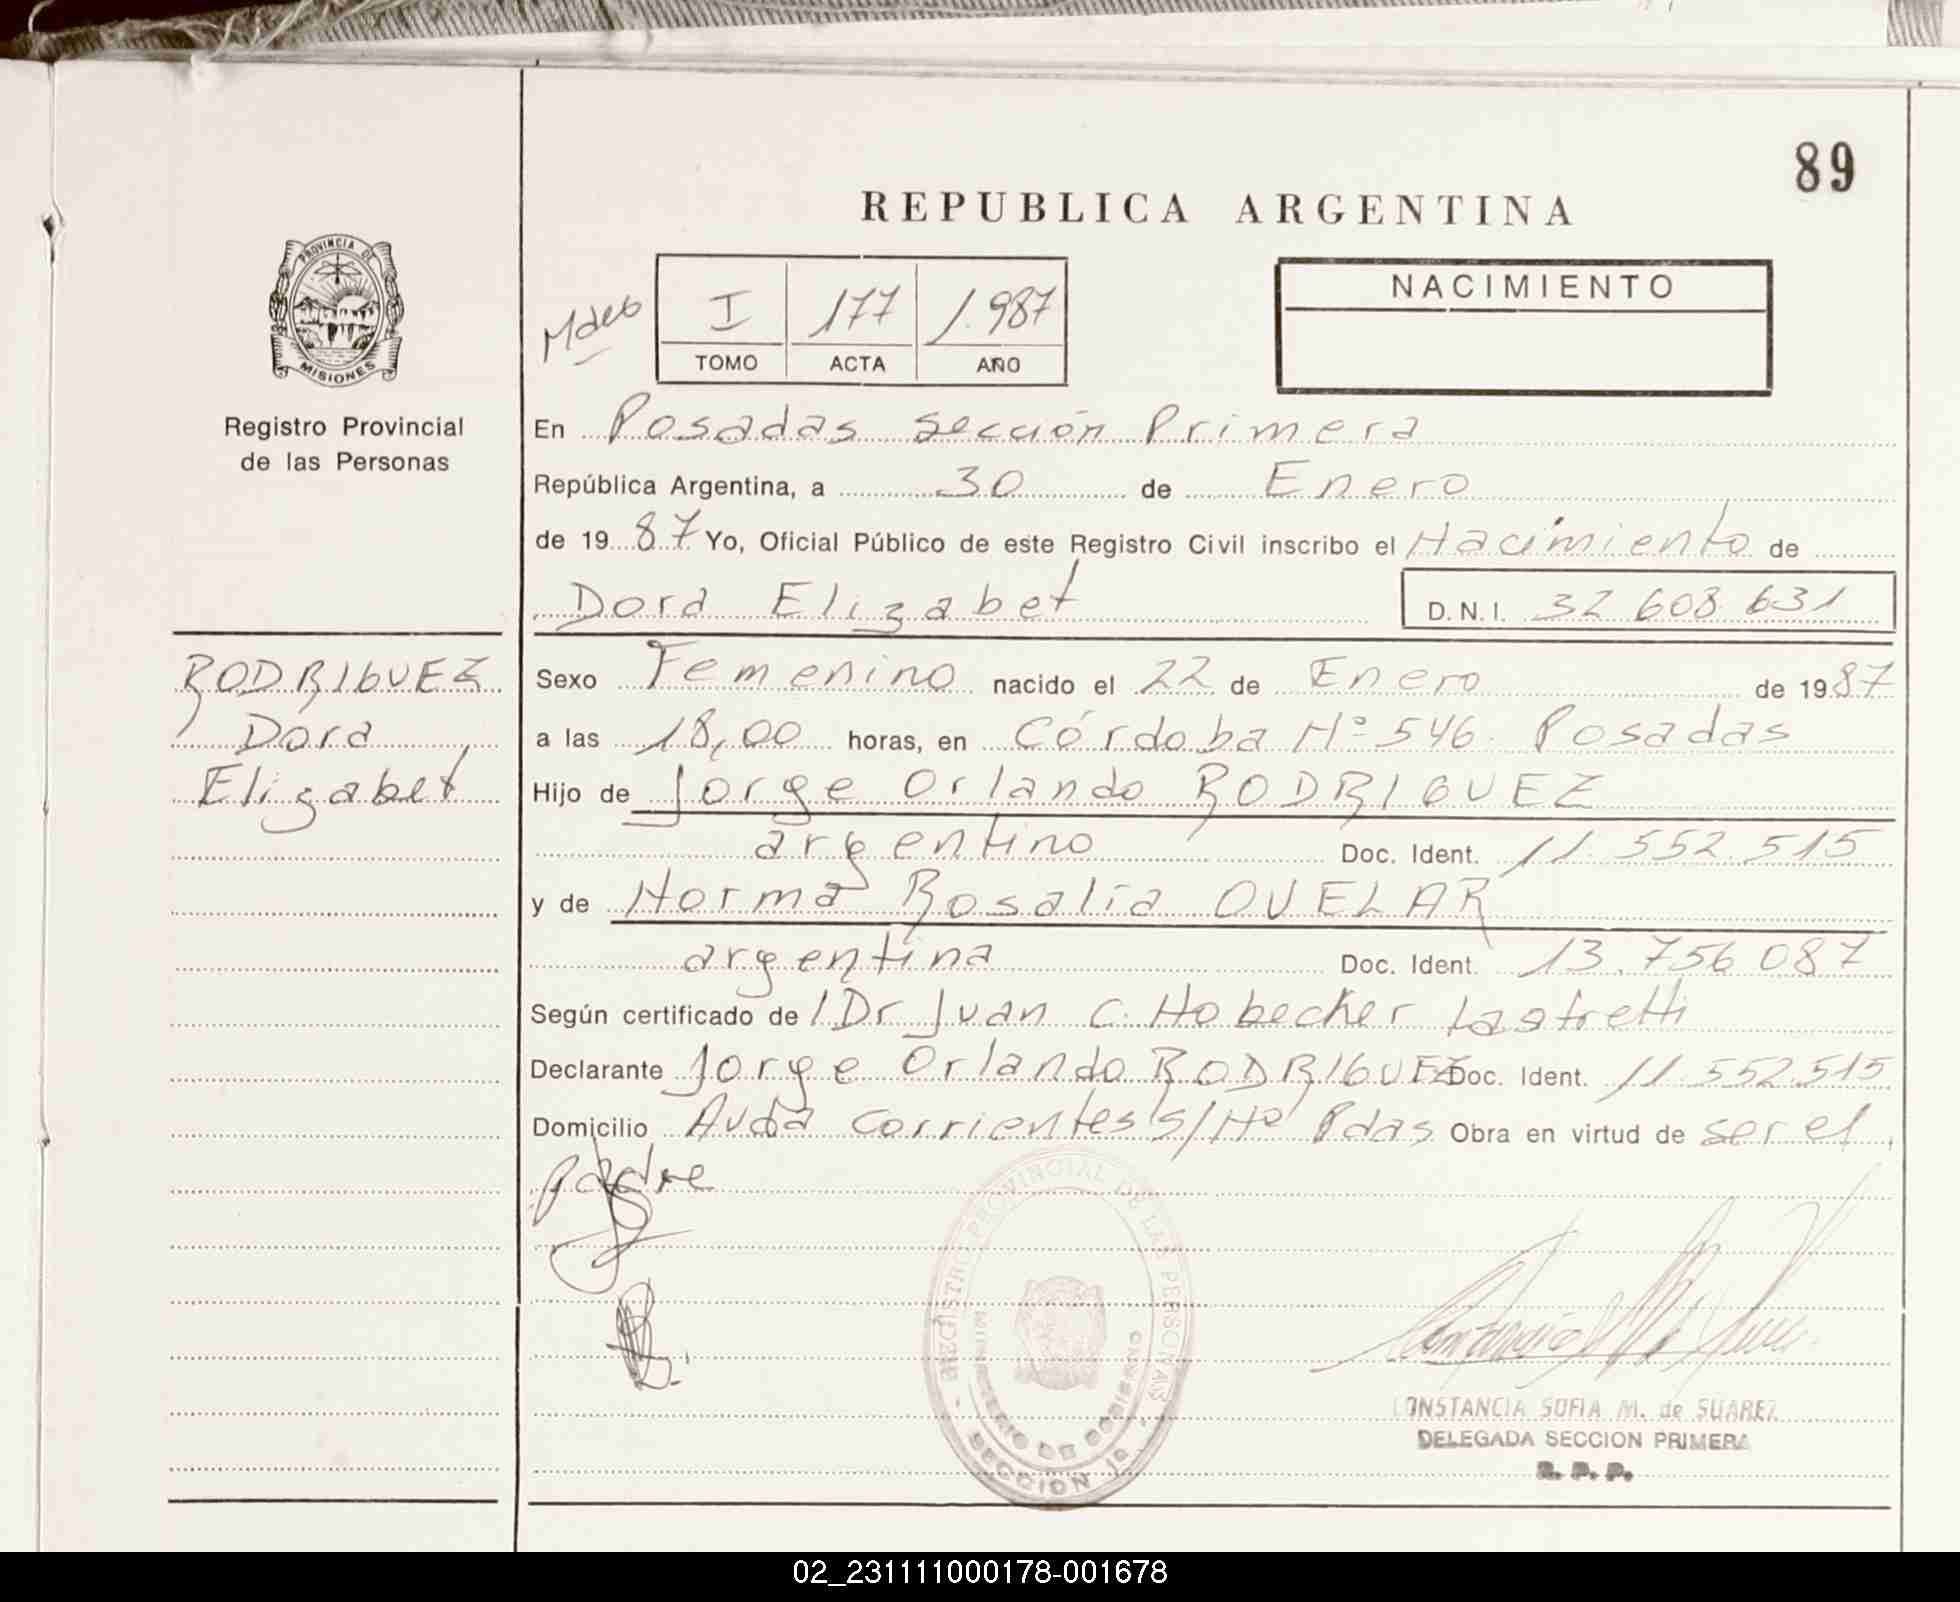 89
REPUBLICA ARGENTINA
PROVINCIA DE
MISIONES
Registro Provincial
de las Personas
I 177 1.987
TOMO ACTA AÑO
NACIMIENTO
En Posadas sección Primera
República Argentina, a 30 de Enero
de 1987 Yo, Oficial Público de este Registro Civil inscribo el Nacimiento de
Dora Elizabet D.N.I. 32 608 631
RODRIGUEZ
Dora
Elizabet
Sexo Femenino nacido el 22 de Enero de 1987
a las 18,00 horas, en Córdoba Nº 546. Posadas
Hijo de Jorge Orlando RODRIGUEZ
argentino Doc. Ident. 11.552.515
y de Norma Rosalía OVELAR
argentina Doc. Ident. 13.756 087
Según certificado de / Dr Juan C. Hobecker Lastretti
Declarante Jorge Orlando RODRIGUEZ Doc. Ident. 11.552.515
Domicilio Avda Corrientes s/Nº Pdas Obra en virtud de ser el
Padre
REGISTRO PROVINCIAL DE LAS PERSONAS
MINISTERIO DE GOBIERNO
SECCIÓN 1ª
CONSTANCIA SOFIA M. de SUAREZ
DELEGADA SECCION PRIMERA
R. P. P.
02_231111000178-001678